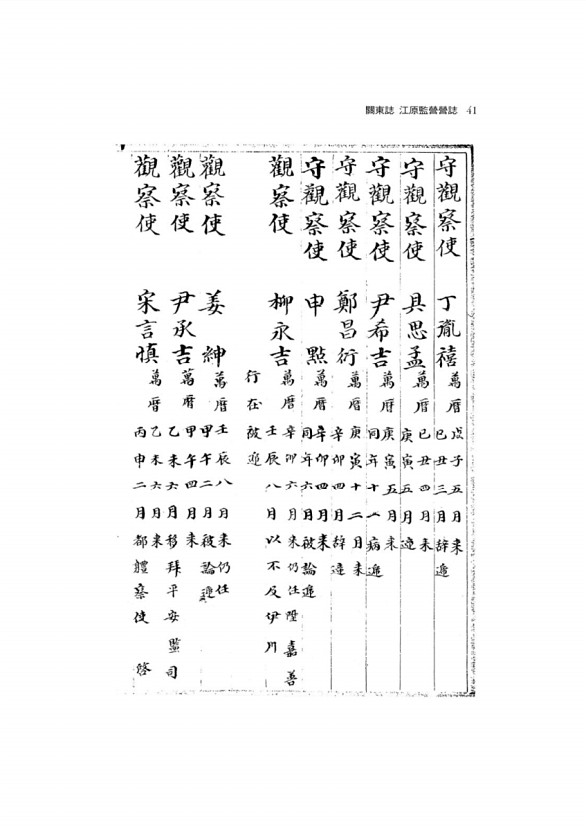 關東誌 江原監營營誌 41
守觀察使 丁胤禧 萬曆 戊子五月來
己丑三月辞遞
守觀察使 具思孟 萬曆 己丑四月來
庚寅五月遞
守觀察使 尹希吉 萬曆 庚寅五月來
同年十一 病遞
守觀察使 鄭昌衍 萬曆 庚寅十二月來
辛卯四月辞遞
守觀察使 申點 萬曆 辛卯四月來
同年六月被論遞
觀察使 柳永吉 萬曆 辛卯六月來仍任陞嘉善
壬辰八月以不及伊川
行在被遞
觀察使 姜紳 萬曆 壬辰八月來仍任
甲午二月被論遞
觀察使 尹承吉 萬曆 甲午四月來
乙未六月移拜平安監司
觀察使 宋言慎 萬曆 乙未六月來
丙申二月都體察使 啓